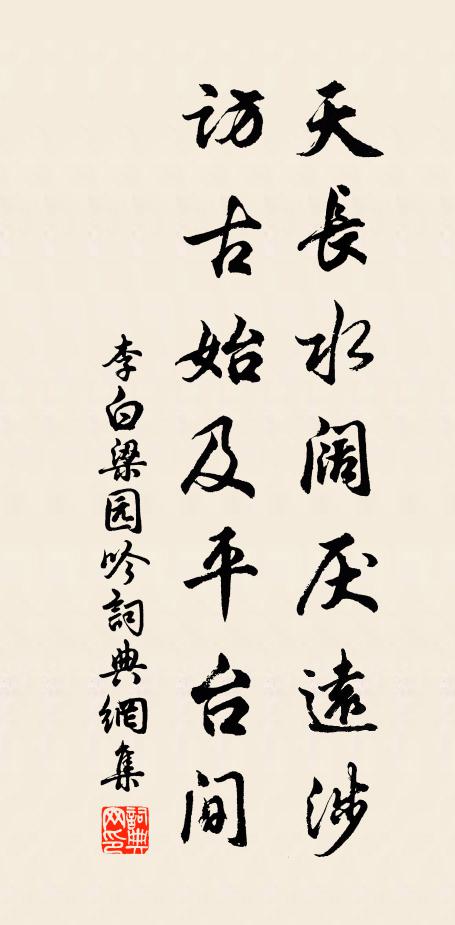 天長水阔厌遠涉
訪古始及平台间
李白梁园吟詞典網集
詞典网印